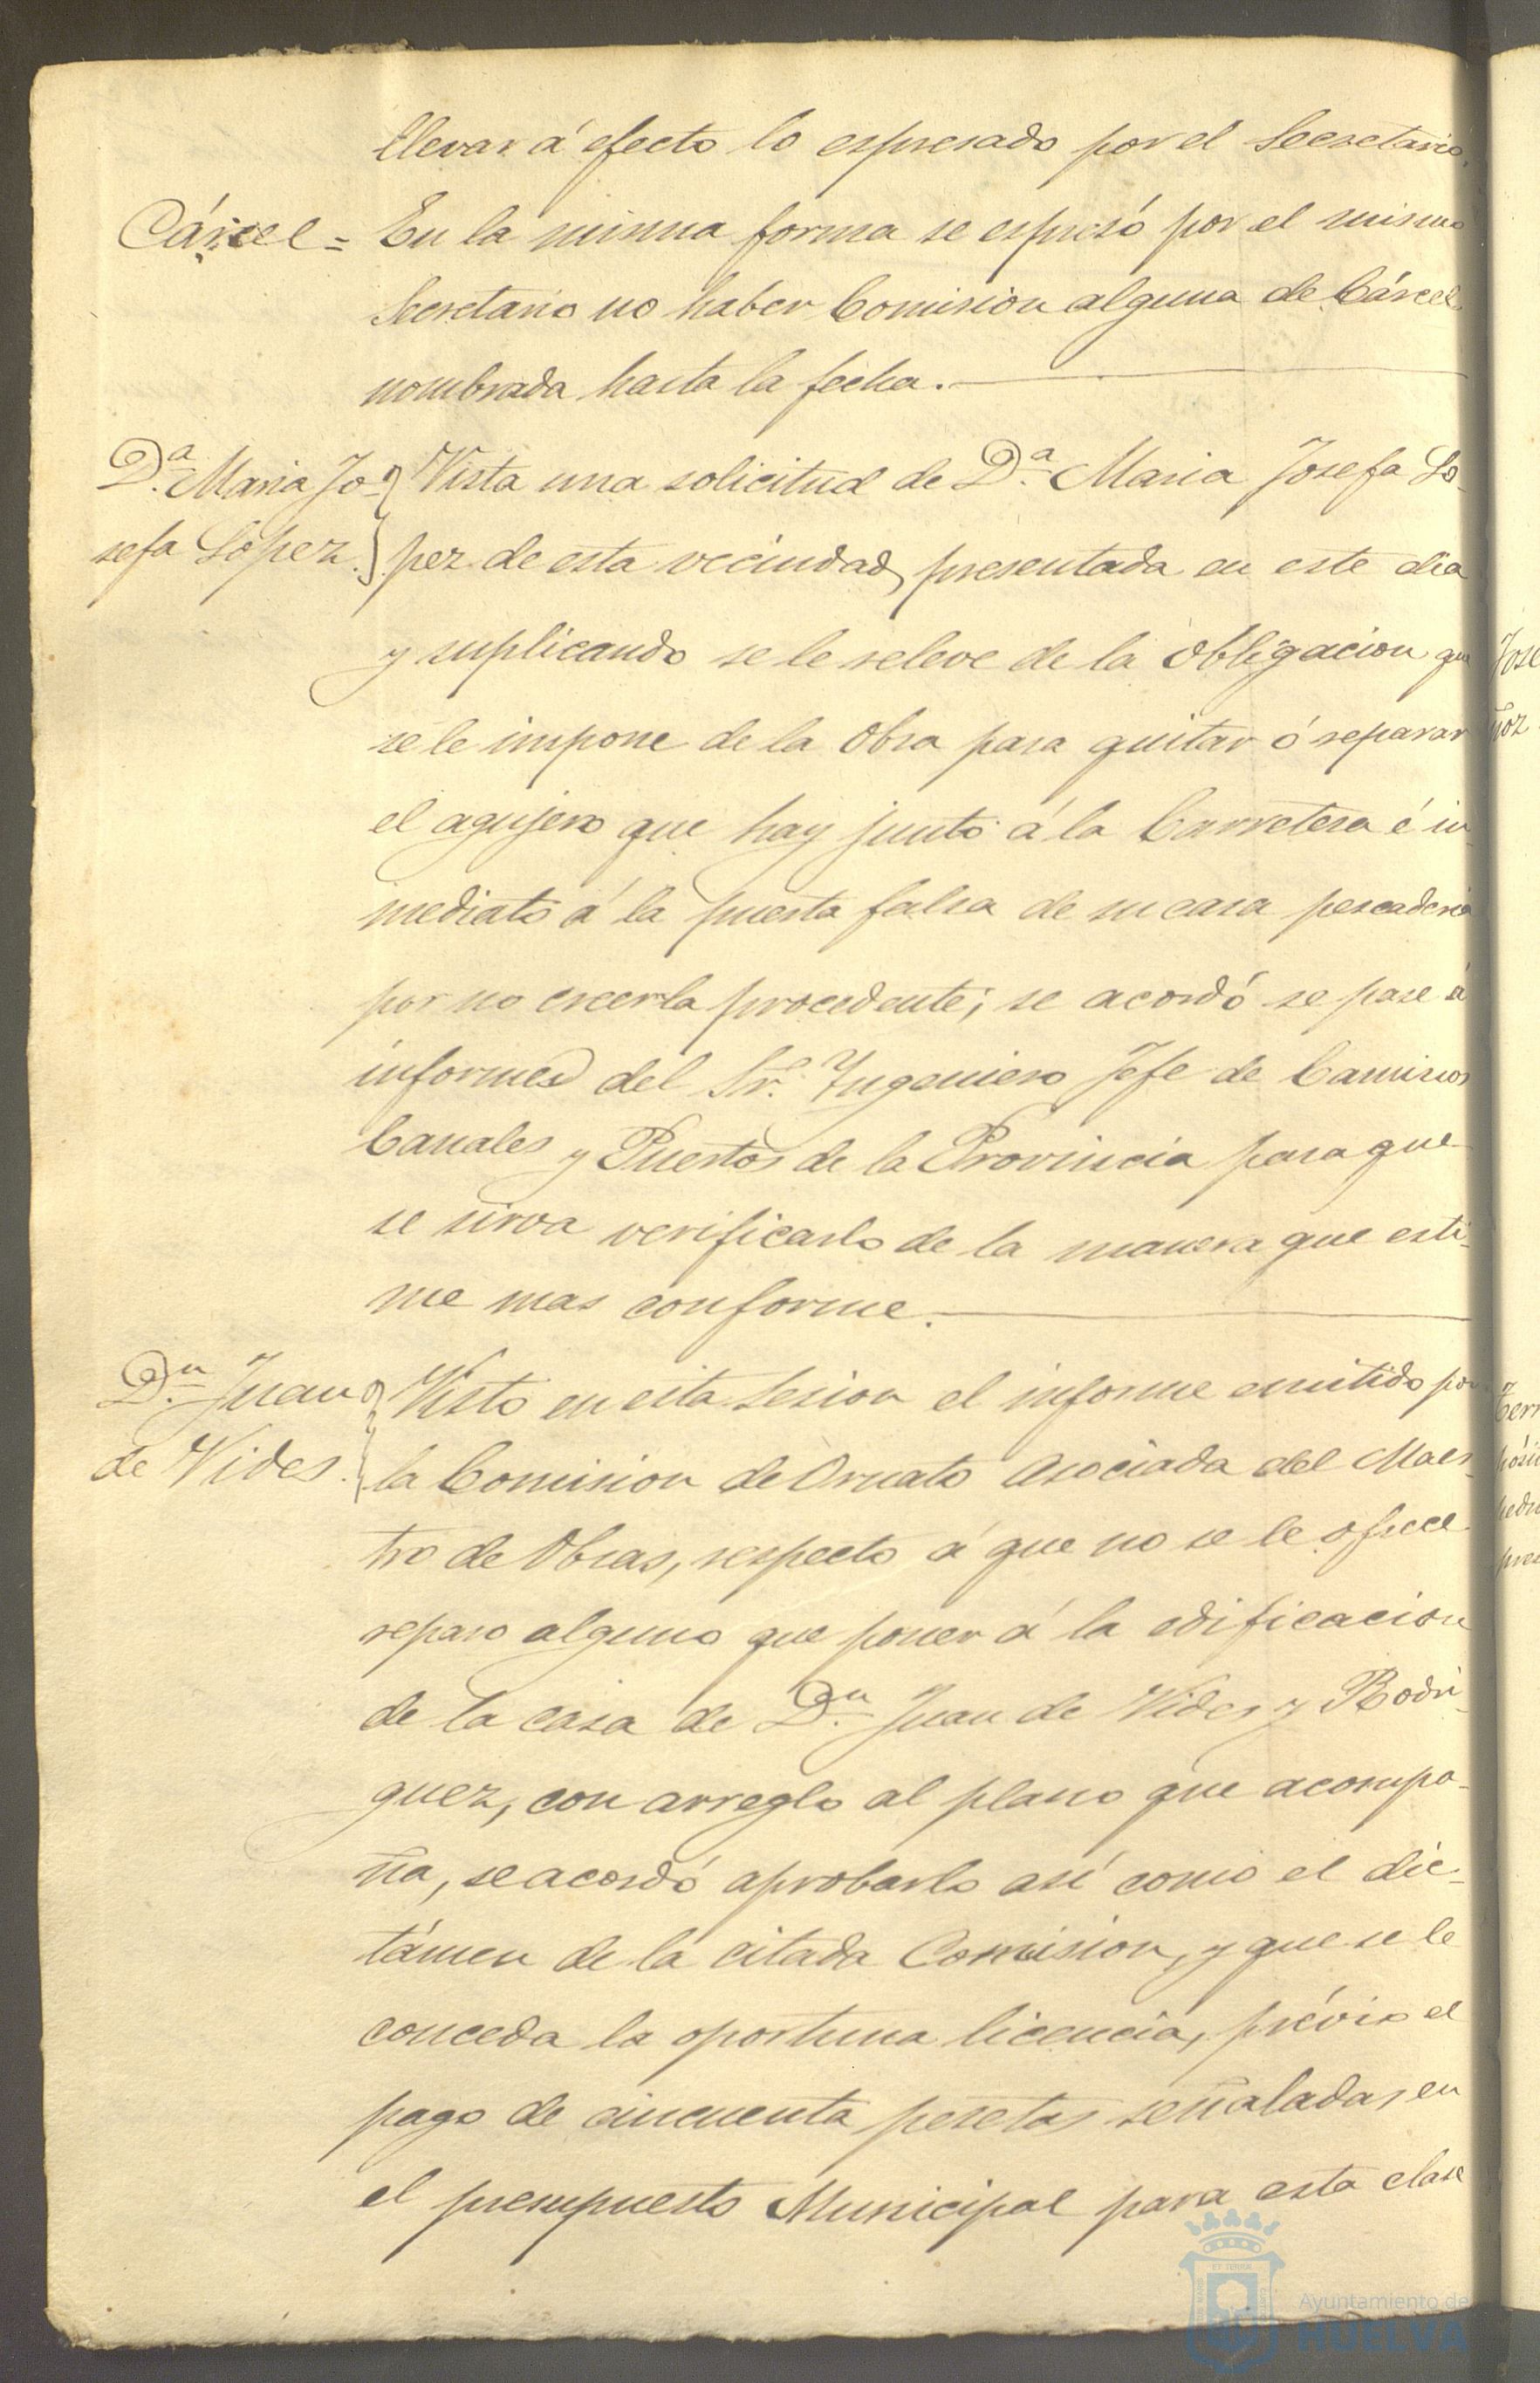 llevar á efecto lo espresado por el Secretario.
Cárcel = En la misma forma se espresó por el mismo
Secretario no haber Comision alguna de Cárcel
nombrada hasta la fecha.
Dª. Maria Jo- Vista una solicitud de Dª. Maria Josefa Lo-
sefa Lopez. pez de esta vecindad, presentada en este dia
y suplicando se le releve de la Obligacion que
se le impone de la Obra para quitar ó reparar
el agujero que hay junto á la Carretera é in-
mediato á la puerta falsa de su casa pescaderia
por no creerla procedente; se acordó se pase á
informes del Sr. Ingeniero Jefe de Caminos
Canales y Puertos de la Provincia para que
se sirva verificarlo de la manera que esti-
me mas conforme.
Dn. Juan Visto en esta Sesion el informe emitido por
de Vides. la Comision de Ornato asociada del Maes-
tro de Obras, respecto á que no se le ofrece
reparo alguno que poner á la edificacion
de la casa de Dn. Juan de Vides y Rodri-
guez, con arreglo al plano que acompa-
ña, se acordó aprobarlo así como el dic-
támen de la citada Comision, y que se le
conceda la oportuna licencia, prévio el
pago de cincuenta pesetas señaladas en
el presupuesto Municipal para esta clase
Ayuntamiento de
HUELVA